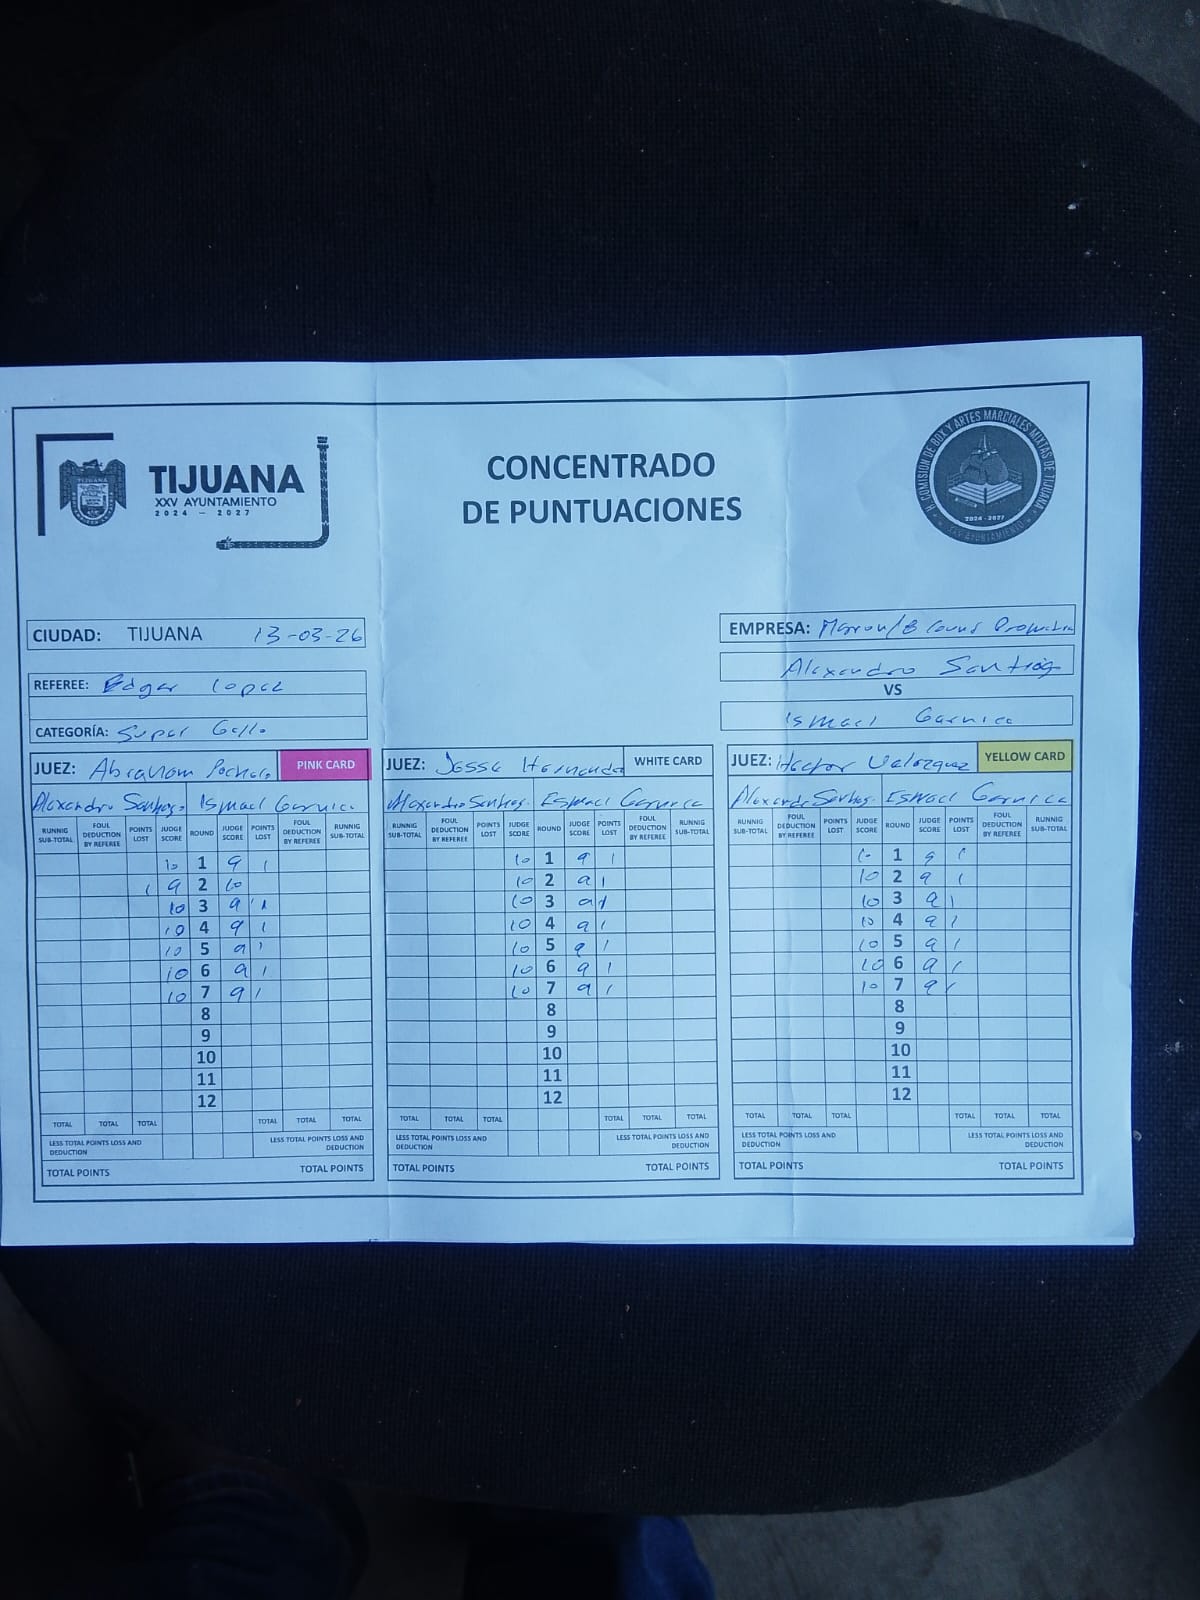 TIJUANA
XXV AYUNTAMIENTO
2024 - 2027
CONCENTRADO
DE PUNTUACIONES
H. COMISION DE BOX Y ARTES MARCIALES MIXTAS DE TIJUANA
2024-2027
XXV AYUNTAMIENTO
CIUDAD: TIJUANA 13-03-26
REFEREE: Edgar Lopez
CATEGORÍA: Super Gallo
EMPRESA:
Alexandro Santiag
VS
Ismael Garnica
JUEZ: Abraham Pacheco PINK CARD
Alexandro Santiag. Ismael Garnica
RUNNIG SUB-TOTAL FOUL DEDUCTION BY REFEREE POINTS LOST JUDGE SCORE ROUND JUDGE SCORE POINTS LOST FOUL DEDUCTION BY REFEREE RUNNIG SUB-TOTAL
10 1 9 1
1 9 2 10
10 3 9 1
10 4 9 1
10 5 9 1
10 6 9 1
10 7 9 1
8
9
10
11
12
TOTAL TOTAL TOTAL TOTAL TOTAL TOTAL
LESS TOTAL POINTS LOSS AND DEDUCTION LESS TOTAL POINTS LOSS AND DEDUCTION
TOTAL POINTS TOTAL POINTS
JUEZ: Jesse Hernandez WHITE CARD
Alexandro Santiag. Esmael Garnica
RUNNIG SUB-TOTAL FOUL DEDUCTION BY REFEREE POINTS LOST JUDGE SCORE ROUND JUDGE SCORE POINTS LOST FOUL DEDUCTION BY REFEREE RUNNIG SUB-TOTAL
10 1 9 1
10 2 9 1
10 3 9 1
10 4 9 1
10 5 9 1
10 6 9 1
10 7 9 1
8
9
10
11
12
TOTAL TOTAL TOTAL TOTAL TOTAL TOTAL
LESS TOTAL POINTS LOSS AND DEDUCTION LESS TOTAL POINTS LOSS AND DEDUCTION
TOTAL POINTS TOTAL POINTS
JUEZ: Hector Velazquez YELLOW CARD
Alexandro Santiag. Esmael Garnica
RUNNIG SUB-TOTAL FOUL DEDUCTION BY REFEREE POINTS LOST JUDGE SCORE ROUND JUDGE SCORE POINTS LOST FOUL DEDUCTION BY REFEREE RUNNIG SUB-TOTAL
10 1 9 1
10 2 9 1
10 3 9 1
10 4 9 1
10 5 9 1
10 6 9 1
10 7 9 1
8
9
10
11
12
TOTAL TOTAL TOTAL TOTAL TOTAL TOTAL
LESS TOTAL POINTS LOSS AND DEDUCTION LESS TOTAL POINTS LOSS AND DEDUCTION
TOTAL POINTS TOTAL POINTS